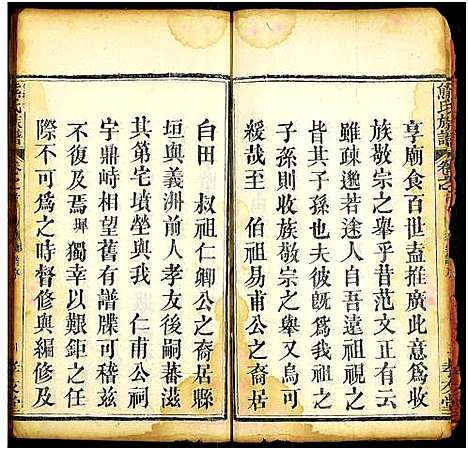 亨廟食百世盍推廣此意為收
族敬宗之舉乎昔范文正有云
雖疎逖若途人自吾遠祖視之
其人子孫也夫彼既為吾祖之
子孫則敬宗之舉又烏可
緩哉至　伯祖易甫公之裔居
白田　叔祖仁卿公之裔居縣
垣與義洲前人孝友後嗣蕃滋
其第宅墳塋與我　仁甫公祠
宇鼎峙相望舊有譜牒可稽茲
不復及焉墀獨幸以艱鉅之任
際不可為之時督修與編修及
氏族譜
孝友堂